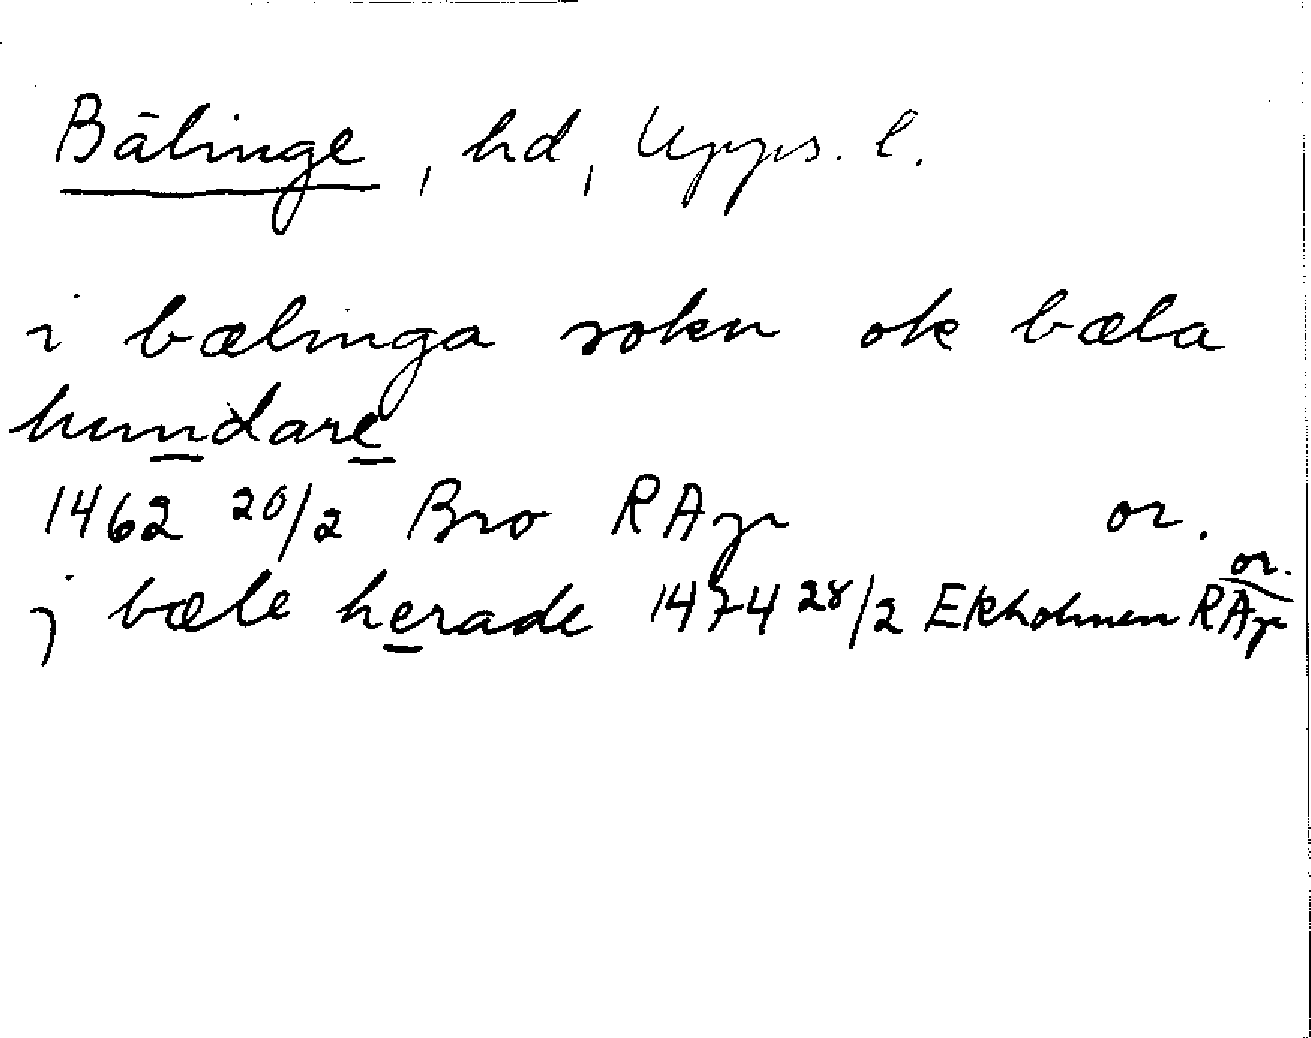 Bälinge, hd, Upps. l.
i bælinga sokn ok bæla
hundare
1462 20/2 Bro RAp or.
j bæle herade 1474 28/2 Ekholmen RAp or.